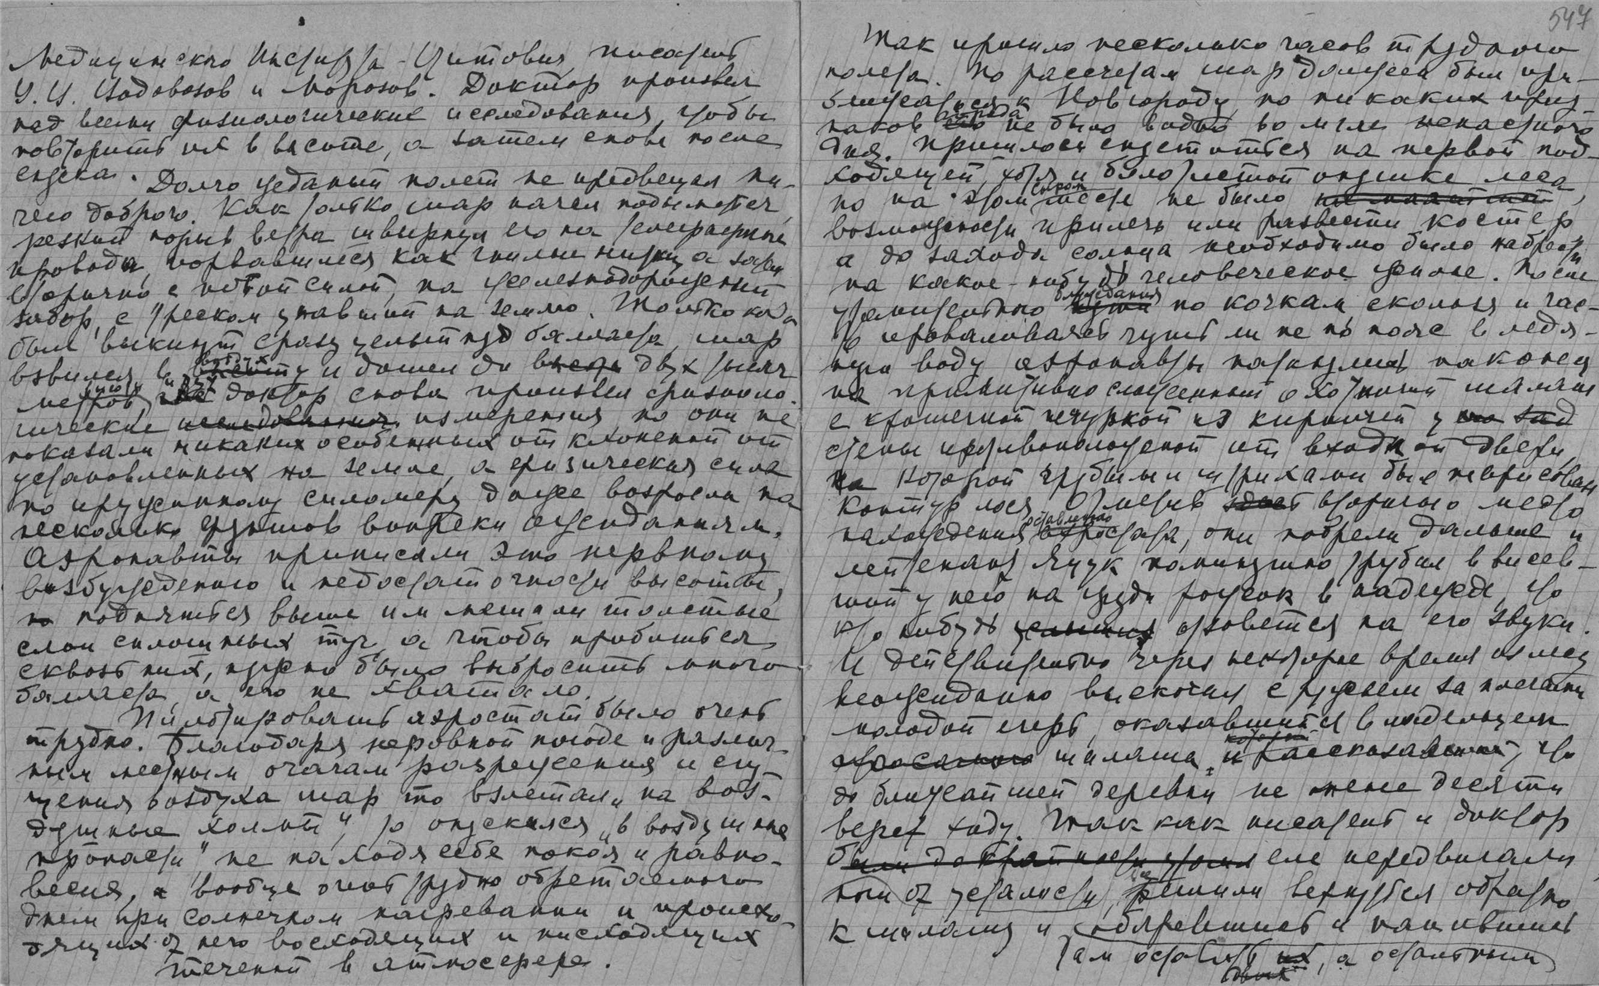 Медицинского Института Цитович, писатель
И. И. и Морозов. Доктор произвел
над всеми физиологические исследования, чтобы
повторить их в высоте, а затем снова после
спуска. Долго жданный полет не предвещал ни-
чего доброго. Как только шар начал подыматься,
резкий порыв ветра швырнул его на телеграфные
провода, порвавшиеся как гнилые нитки, а затем
вторично с новой силой на железнодорожный
забор, с треском упавший на землю. Только когда
был выкинут сразу целый пуд балласта, шар
взвился в воздух и дошел до двух тысяч
метров, доктор снова произвел физиоло-
гические исследования измерения но они не
показали никаких особенных отклонений от
установленных на земле, а физическая сила
по пружинному силомеру даже возросла на
несколько фунтов вопреки ожиданиям.
Аэронавты приписали это нервному
возбуждению и недостаточности высоты,
но подняться выше им мешали толстые
слои сплошных туч, а чтобы пробиться
сквозь них, нужно было выбросить много
балласта, а его не хватало.
Пилотировать аэростат было очень
трудно. Благодаря неровной погоде и различ-
ным местным очагам разрежения и сгу-
щения воздуха шар то взлетал „на воз-
душные холмы", то опускался „в воздушные
пропасти" не находя себе покоя и равно-
весия, и вообще очень трудно обретаемого
днем при солнечном нагревании и происхо-
дящих от него восходящих и нисходящих
течений в атмосфере.
547
Так прошло несколько часов трудного
полета. По рассчетам шар должен был при-
близиться к Новгороду, но никаких приз-
наков города не было видно во мгле ненастного
дня. Пришлось спуститься на первой под-
ходящей хотя и болотистой опушке леса,
но на этом сыром месте не было
возможности прилечь или развести костер
а до захода солнца необходимо было набрести
на какое-нибудь человеческое жилье. После
блуждания пути по кочкам, скользя и час-
то проваливаясь чуть ли не по пояс в ледя-
ную воду аэронавты наткнулись наконец
на примитивно сложенный охотничий шалаш
с крошечной печуркой из кирпичей у
стены противоположной от входной двери,
на которой грубыми штрихами был нарисован
контур лося. Отметив место
нахождения аэростата, они побрели дальше и
лейтенант Янчук поминутно трубил в висев-
ший у него на груди рожок в надежде, что
кто нибудь услышит отзовется на его звуки.
И действительно через некоторое время из леса
неожиданно выскочил с ружьем за плечами
молодой егерь, оказавшийся владельцем
шалаша, и рассказавший, что
до ближайшей деревни не менее десяти
верст ходу. Так как писатель и доктор
были до крайности еле передвигали
ноги от усталости, решили вернуться обратно
к шалашу и обогревшись и напившись
там оставить их, а остальным